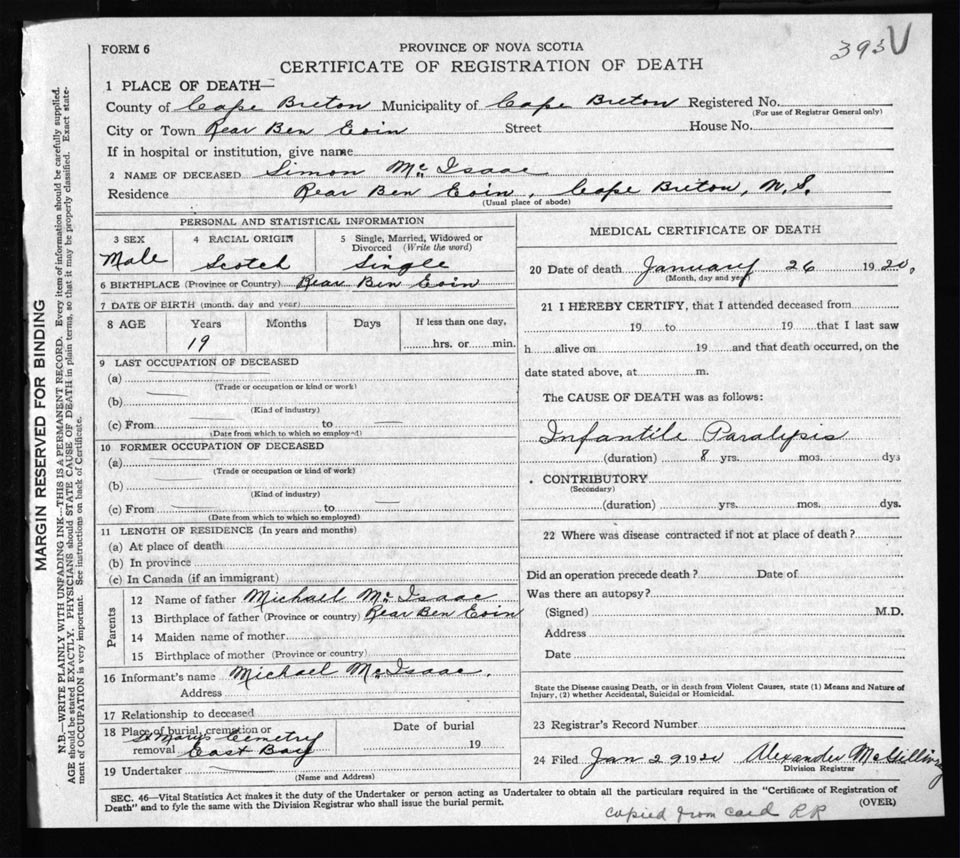 393 V
FORM 6
PROVINCE OF NOVA SCOTIA
CERTIFICATE OF REGISTRATION OF DEATH
1 PLACE OF DEATH—
County of Cape Breton Municipality of Cape Breton Registered No.
(For use of Registrar General only)
City or Town Rear Ben Eoin Street House No.
If in hospital or institution, give name
2 NAME OF DECEASED Simon Mc Isaac
Residence Rear Ben Eoin, Cape Breton, N.S.
(Usual place of abode)
PERSONAL AND STATISTICAL INFORMATION
3 SEX 4 RACIAL ORIGIN 5 Single, Married, Widowed or Divorced (Write the word)
Male Scotch Single
6 BIRTHPLACE (Province or Country) Rear Ben Eoin
7 DATE OF BIRTH (month, day and year)
8 AGE Years Months Days If less than one day,
19 hrs. or min.
9 LAST OCCUPATION OF DECEASED
(a)
(Trade or occupation or kind or work)
(b)
(Kind of industry)
(c) From to
(Date from which to which so employed)
10 FORMER OCCUPATION OF DECEASED
(a)
(Trade or occupation or kind of work)
(b)
(Kind of industry)
(c) From to
(Date from which to which so employed)
11 LENGTH OF RESIDENCE (In years and months)
(a) At place of death
(b) In province
(c) In Canada (if an immigrant)
Parents
12 Name of father Michael Mc Isaac
13 Birthplace of father (Province or country) Rear Ben Eoin
14 Maiden name of mother
15 Birthplace of mother (Province or country)
16 Informant's name Michael McIsaac.
Address
17 Relationship to deceased
18 Place of burial, cremation or
removal St Marys Cemetry
East Bay
Date of burial
19
19 Undertaker
(Name and Address)
MEDICAL CERTIFICATE OF DEATH
20 Date of death January 26 1920.
(Month, day and year)
21 I HEREBY CERTIFY, that I attended deceased from
19 to 19 that I last saw
h alive on 19 and that death occurred, on the
date stated above, at m.
The CAUSE OF DEATH was as follows:
Infantile Paralysis
(duration) 8 yrs. mos. dys
CONTRIBUTORY
(Secondary)
(duration) yrs. mos. dys.
22 Where was disease contracted if not at place of death?
Did an operation precede death? Date of
Was there an autopsy?
(Signed) M.D.
Address
Date
State the Disease causing Death, or in death from Violent Causes, state (1) Means and Nature of
Injury, (2) whether Accidental, Suicidal or Homicidal.
23 Registrar's Record Number
24 Filed Jan 29 1920 Alexander McGillivry
Division Registrar
SEC. 46—Vital Statistics Act makes it the duty of the Undertaker or person acting as Undertaker to obtain all the particulars required in the "Certificate of Registration of
Death" and to fyle the same with the Division Registrar who shall issue the burial permit.
(OVER)
copied from card RR
MARGIN RESERVED FOR BINDING
N.B.—WRITE PLAINLY WITH UNFADING INK—THIS IS A PERMANENT RECORD. Every item of information should be carefully supplied.
AGE should be stated EXACTLY. PHYSICIANS should STATE CAUSE OF DEATH in plain terms, so that it may be properly classified. Exact state-
ment of OCCUPATION is very important. See instructions on back of Certificate.